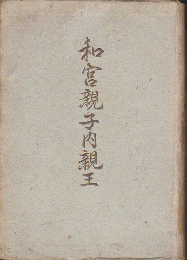 和宮親子内親王